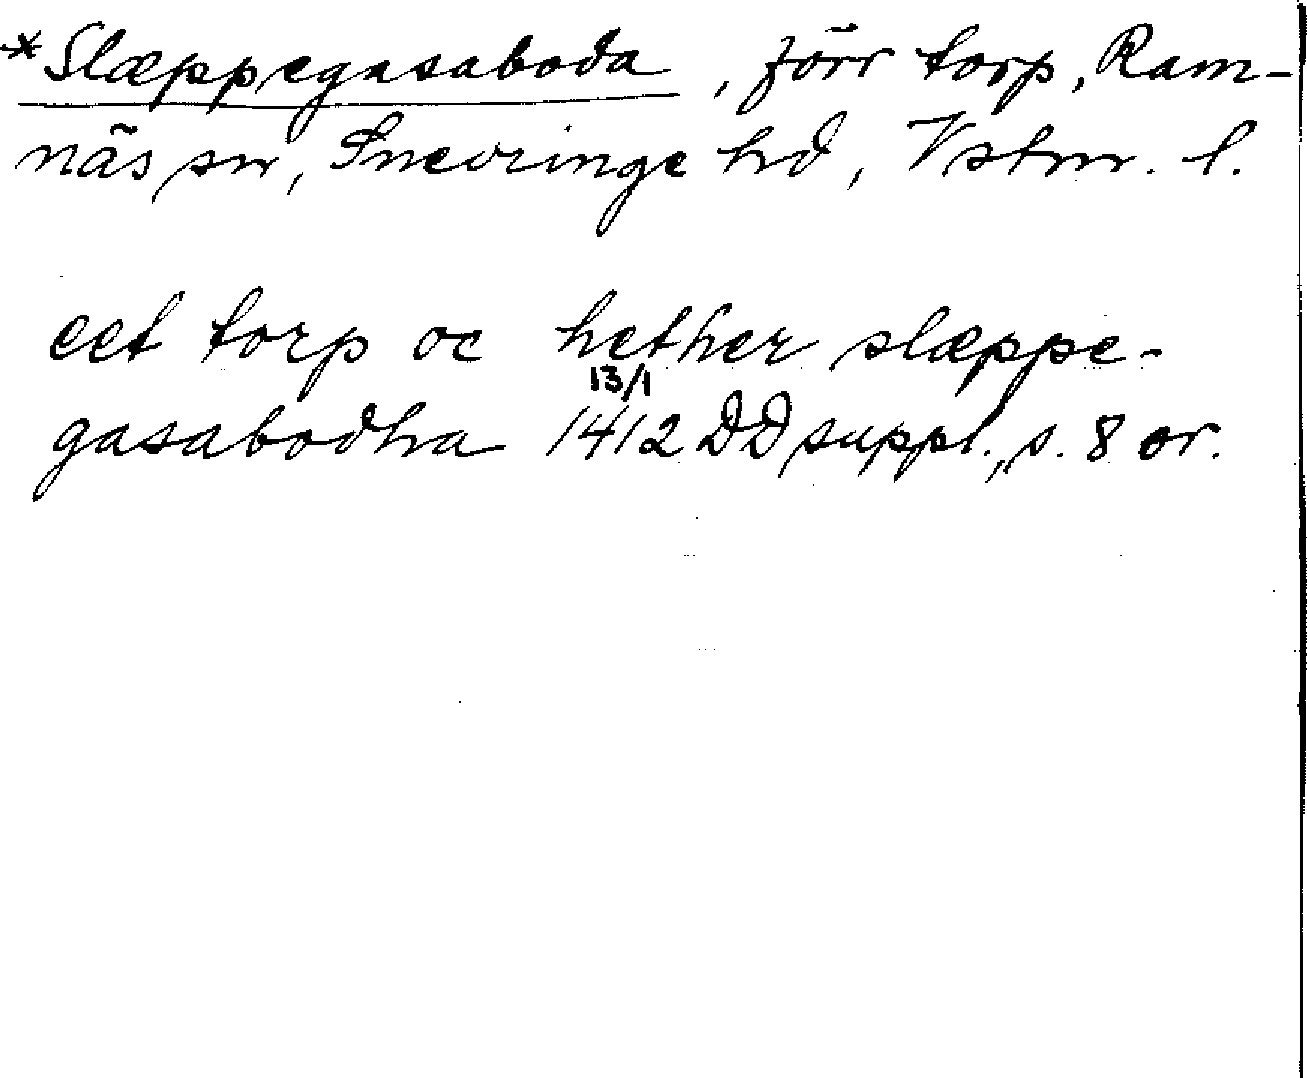 *Slæppegasaboda, förr torp, Ram-
näs sn, Snevringe hd, Vstm. l.
eet torp oc hether slæppe-
13/1
gasabodha 1412 DD suppl., s. 8 or.